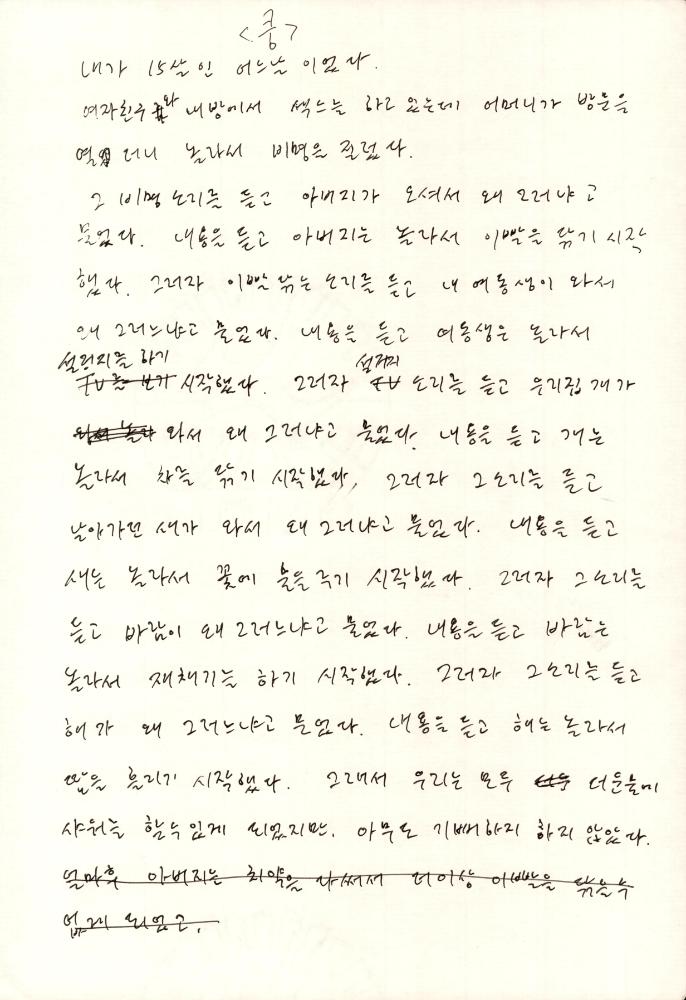 <쿵>
내가 15살인 어느날 이었다.
여자친구와 내방에서 섹스를 하고 있는데 어머니가 방문을
열더니 놀라서 비명을 질렀다.
그 비명 소리를 듣고 아버지가 오셔서 왜 그러냐고
물었다. 내용을 듣고 아버지는 놀라서 이빨을 닦기 시작
했다. 그러자 이빨 닦는 소리를 듣고 내 여동생이 와서
왜 그러느냐고 물었다. 내용을 듣고 여동생은 놀라서
설겆이를 하기 설겆이
TV를 보기 시작했다. 그러자 TV 소리를 듣고 우리집 개가
와서 왜 그러냐고 물었다. 내용을 듣고 개는
놀라서 차를 닦기 시작했다, 그러자 그 소리를 듣고
날아가던 새가 와서 왜 그러냐고 물었다. 내용을 듣고
새는 놀라서 꽃에 물을 주기 시작했다. 그러자 그 소리를
듣고 바람이 왜 그러느냐고 물었다. 내용을 듣고 바람은
놀라서 재채기를 하기 시작했다. 그러자 그 소리를 듣고
해가 왜 그러느냐고 물었다. 내용을 듣고 해는 놀라서
땀을 흘리기 시작했다. 그래서 우리는 모두 더운물에
샤워를 할수 있게 되었지만. 아무도 기뻐하지 하지 않았다.
얼마후 아버지는 치약을 다써서 더이상 이빨을 닦을수
없게 되었고.